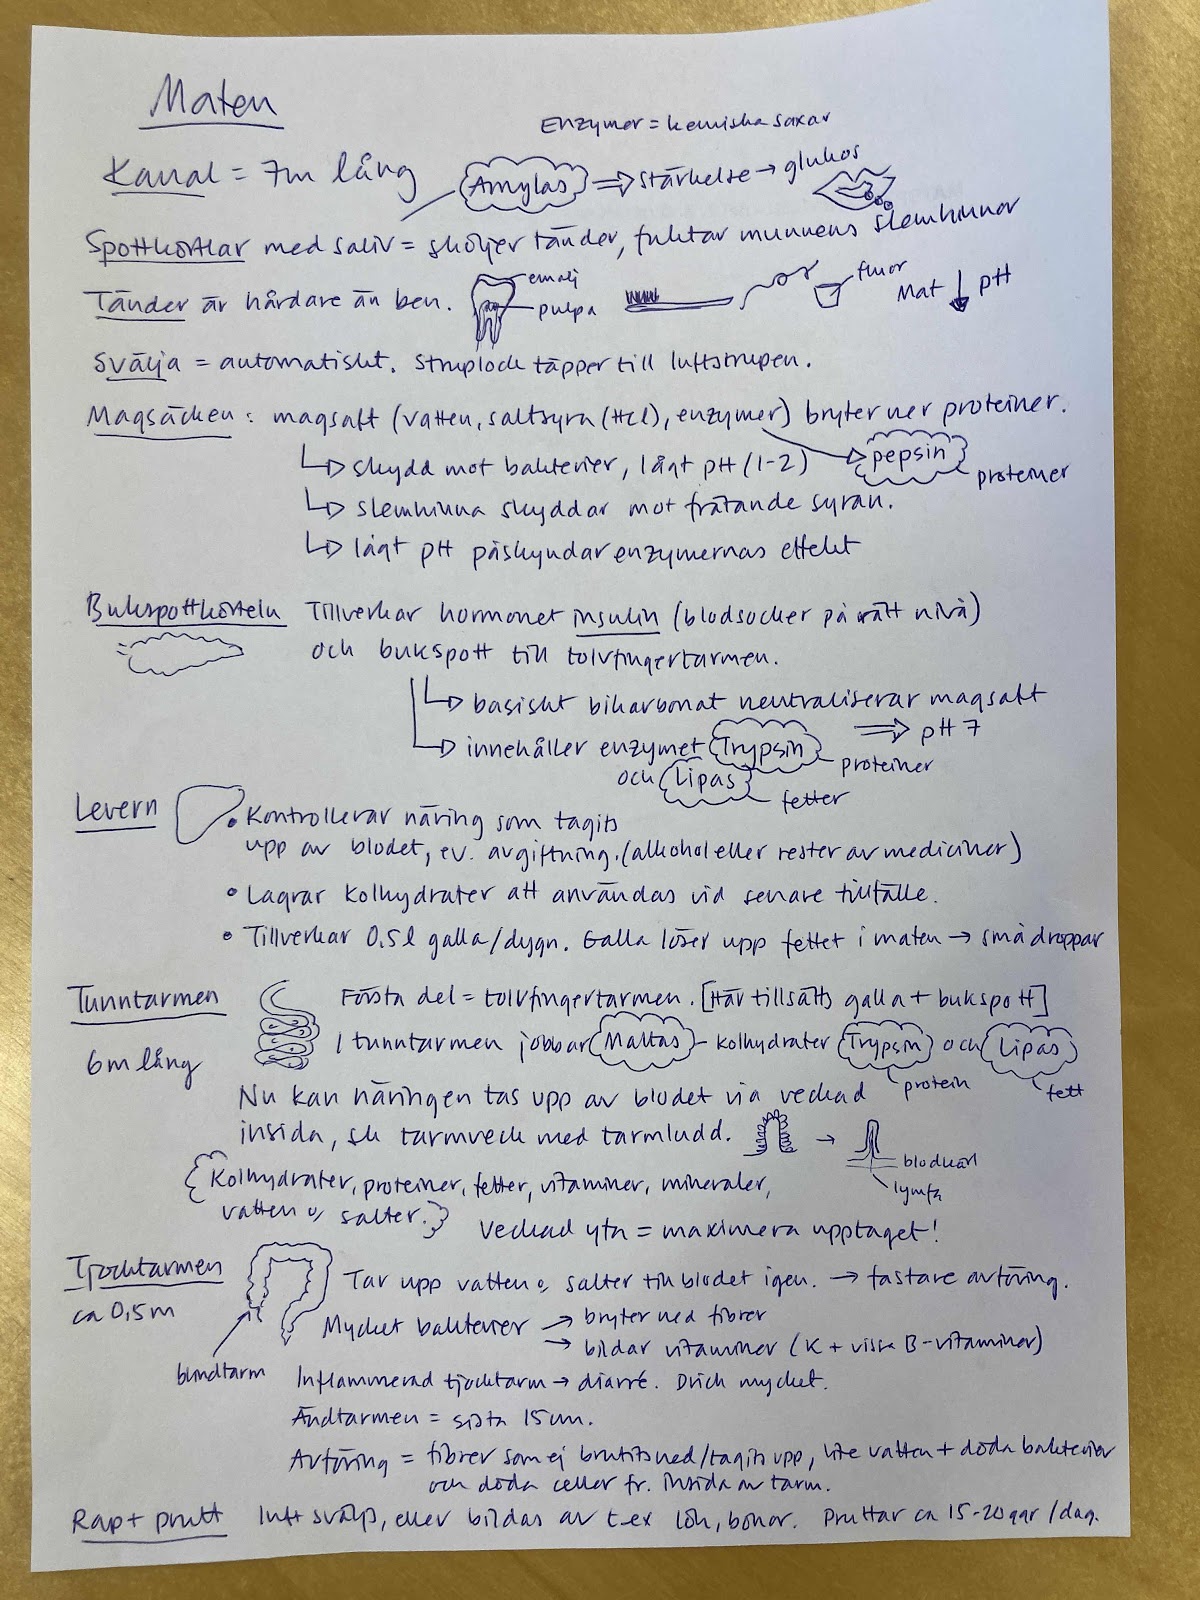 Maten
Enzymer = kemiska saxar
Kanal = 7m lång
Amylas ⇒ stärkelse → glukos
Spottkörtlar med saliv = sköljer tänder, fuktar munnens slemhinnor
Tänder är hårdare än ben.
emalj
pulpa
fluor
Mat ↓ pH
Svälja = automatiskt. Struplock täpper till luftstrupen.
Magsäcken: magsaft (vatten, saltsyra (HCl), enzymer) bryter ner proteiner.
↳ skydd mot bakterier, lågt pH (1-2)
pepsin
proteiner
↳ slemhinna skyddar mot frätande syran.
↳ lågt pH påskyndar enzymernas effekt
Bukspottkörteln Tillverkar hormonet insulin (blodsocker på rätt nivå)
och bukspott till tolvfingertarmen.
↳ basiskt bikarbonat neutraliserar magsaft
⇒ pH 7
↳ innehåller enzymet Trypsin
proteiner
och Lipas
fetter
Levern
• Kontrollerar näring som tagits
upp av blodet, ev. avgiftning. (alkohol eller rester av mediciner)
• Lagrar kolhydrater att användas vid senare tillfälle.
• Tillverkar 0,5 l galla/dygn. Galla löser upp fettet i maten → små droppar
Tunntarmen Första del = tolvfingertarmen. [Här tillsätts galla + bukspott]
6m lång
I tunntarmen jobbar Maltas - kolhydrater Trypsin och Lipas
protein
fett
Nu kan näringen tas upp av blodet via veckad
insida, sk tarmveck med tarmludd.
→
blodkärl
lymfa
{Kolhydrater, proteiner, fetter, vitaminer, mineraler,
vatten o, salter.}
Veckad yta = maximera upptaget!
Tjocktarmen
ca 0,5m
Tar upp vatten o, salter till blodet igen. → fastare avföring.
Mycket bakterier → bryter ned fibrer
→ bildar vitaminer (K + vissa B-vitaminer)
blindtarm
Inflammerad tjocktarm → diarré. Drick mycket.
Ändtarmen = sista 15 cm.
Avföring = fibrer som ej brutits ned/tagits upp, lite vatten + döda bakterier
och döda celler fr. insida av tarm.
Rap + prutt luft sväljs, eller bildas av t.ex lök, bönor. Pruttar ca 15-20 ggr/dag.